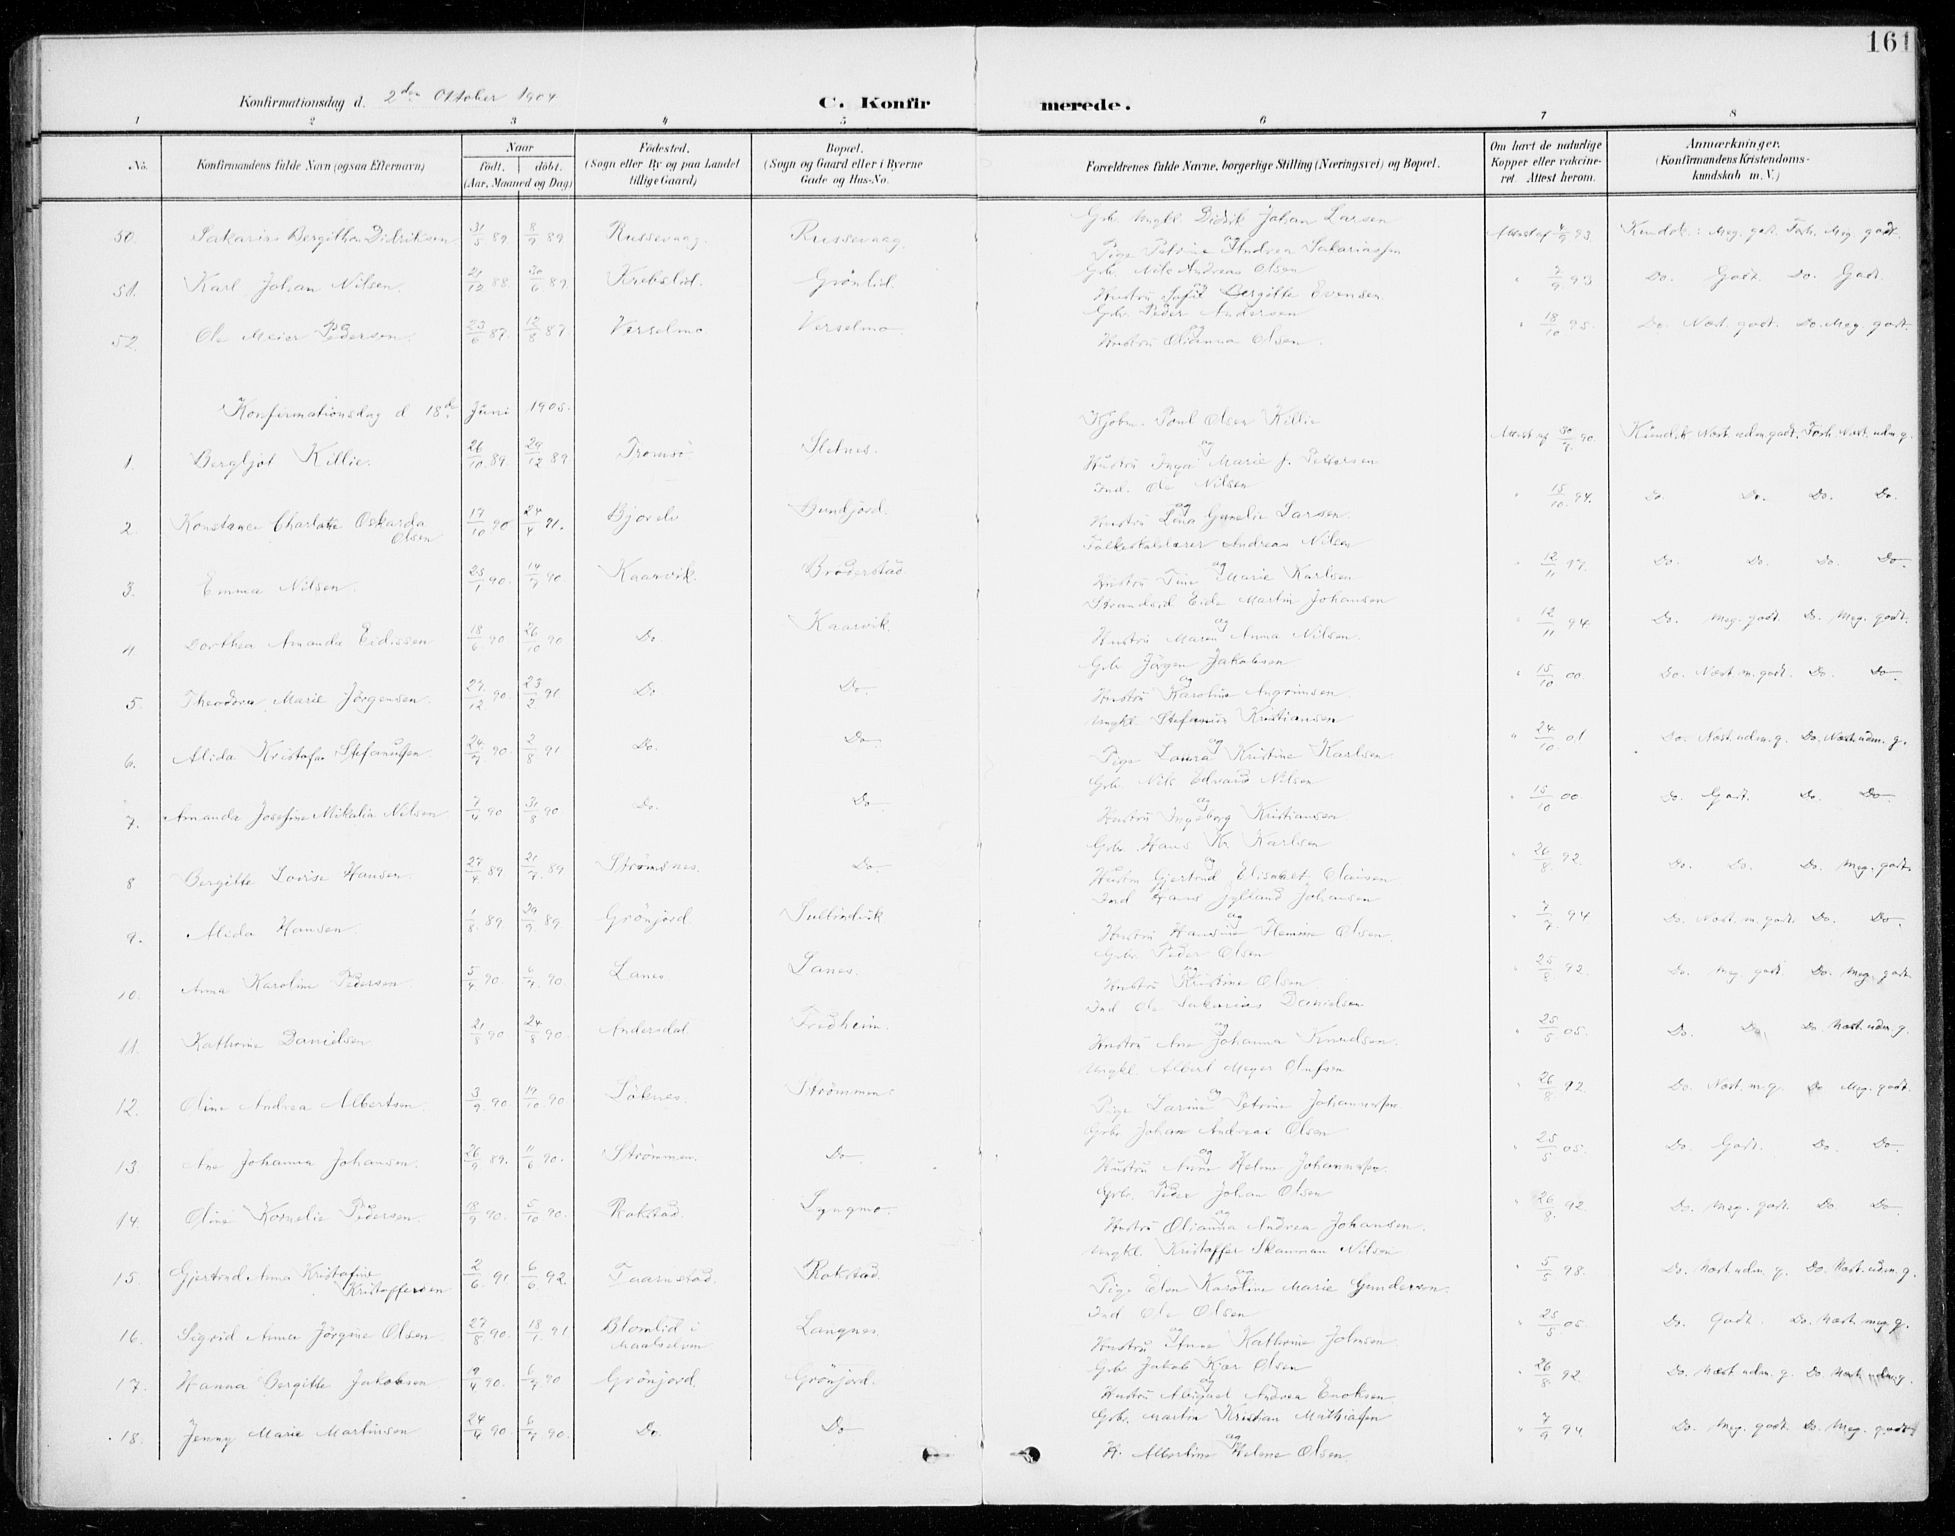 161
Konfirmationsdag d. 2den Oktober 1904
C. Konfirmerede.
1 2 3 4 5 6 7 8
No.
Konfirmandens fulde Navn (ogsaa Efternavn)
Naar
födt. döbt.
(Aar, Maaned og Dag)
Födested.
(Sogn eller By og paa Landet
tillige Gaard)
Bopæl.
(Sogn og Gaard eller i Byerne
Gade og Hus-No.
Forældrenes fulde Navne, borgerlige Stilling (Næringsvei) og Bopæl.
Om havt de naturlige
Kopper eller vakcine-
ret. Attest herom.
Anmærkninger.
(Konfirmandens Kristendoms-
kundskab m. V.)
Gbr. Ungkl. Didrik Johan Larsen
50. Sakarias Bergithon Didriksen 31/5 89 8/9 89 Russevaag. Russevaag. Attest af 4/9 93. Kundsk: Meg. godt. Forh. Meg. godt.
Pige Petrine og Andrea Sakariassen
Gbr. Nils Andreas Olsen
51. Karl Johan Nilsen. 21/12 88 30/6 89 Krebslid. Grönlid. " 7/9 93 Do. Godt. Do. Godt.
Hustru Sofie Bergitte Evensen
Gbr. Peder Andersen
52. Ole Meier Pedersen. 23/6 87. 12/8 87 Verselmo Verselmo " 18/10 95. Do. Næst. godt. Do. Meg. godt.
og
Hustru Olianna Olsen.
Konfirmationsdag d 18de Juni 1905.
Kjöbm. Poul Olsen Killie
1. Bergljot Killie. 26/10 89. 29/12 89 Tromsö Sletnes. Attest af 30/7 90. Kundsk. Næst. udm. godt. Forh. Næst. udm. g.
og
Hustru Inga Marie J. Pettersen
Ind. Ole Nilsen
2. Konstance Charlotte Oskarda 17/10 90 24/4 91. Bjorelv Sundfjord. " 15/10. 94. Do. Do. Do. Do.
Olsen
og
Hustru Lena Gunelie Larsen.
Folkeskolelærer Andreas Nilsen
3. Emma Nilsen. 25/1 90. 14/7 90 Kaarvik. Bröderstad. " 12/11 97. Do. Do. Do. Do
og
Hustru Tine Marie Karlsen
Strandsid Eide Martin Johansen
4. Dorthea Amanda Eidissen 18/6 90 26/10 90 Do. Kaarvik. " 12/11 94 Do. Meg. godt. Do. Meg. godt.
og
Hustru Maren Anna Nilsen.
Gbr. Jörgen Jakobsen
5. Theodora Marie Jörgensen 27/12 90. 23/2 91 Do Do. " 15/10 00. Do. Næst. m. godt. Do. Do
og
Hustru Karoline Angrimsen.
Ungkl. Stefanus Kristiansen
6. Alida Kristofa Stefanussen. 24/7 90. 2/8 91 Do. Do " 24/10 01 Do. Næst. udm. g. Do. Næst. udm. g.
og
Pige Laura Kristine Karlsen
Gbr. Nils Edvard Nilsen
7. Amanda Josefine Mikalia Nilsen 7/4 90 31/8 90 Do. Do " 15/10 00 Do. Godt. Do. Do.
og
Hustru Ingeborg Kristiansen.
Gbr. Hans Kr. Karlsen
8 Bergitte Lovise Hansen. 27/4. 89. 21/7. 89 Strömsnes. Do. " 26/8. 92. Do. Do. Do. Meg. godt.
og
Hustru Gjertrud Elisabet Olaisen
Ind Hans Jylland Johansen
9. Alida Hansen. 1/8. 89 29/9. 89 Grönjord Sultindvik " 7/7. 94 Do. Næst. m. godt. Do. Do.
og
Hustru Hansine Hemine Olsen.
Gbr. Peder Olsen
10. Anna Karoline Pedersen. 5/4 90. 6/7. 90. Lanes Sanes. " 25/8 92. Do. Meg. godt Do. Meg. godt.
og
Hustru Kristine Olsen.
Ind Ole Sakarias Danielsen
11. Kathrine Danielsen 21/8 90 24/8 90. Andersdal Fredheim. " 25/5 05. Do. Do. Do. Næst. udm. g.
og
Hustru Ane Johanna Knudsen.
Ungkl. Albert Meyer Olufsen
12. Oline Andrea Albertsen. 3/9 90. 19/10 90 Söknes. Strömmen. " 26/8 92. Do. Næst. m. g. Do Meg. godt.
og
Pige Larine Petrine Johannessen.
Gbr. Johan Andreas Olsen
13. Ane Johanna Johansen. 26/9 89. 11/6 90. Strömmen. Do. " 25/5 05. Do. Godt. Do. Do.
og
Hustru Anne Helene Johannesen
Gbr. Peder Johan Olsen
14. Oline Kornelie Pedersen. 18/9 90. 5/10 90. Rakstad. Lyngmo. " 26/8. 92. Do. Meg. godt. Do. Do.
og
Hustru Olianna Andrea Johansen.
Ungkl. Kristoffer Skamman Nilsen
15. Gjertrud Anna Kristofine 2/6. 91 6/6 92. Taarnstad. Rakstad " 5/5 98. Do. Næst. udm. g. Do. Næst. udm. g.
Kristoffersen
og
Pige Elen Karoline Marie Gundersen.
Ind Ole Olsen
16. Sigrid Anna Jörgine Olsen. 27/8 90. 18/1 91 Blomlid i Langnes. " 25/5 05. Do. Godt. Do. Næst. meg. g.
Maalselven
og
Hustru Anne Kathrine Johnsen.
Gbr Jakob Kjær Olsen
17. Hanna Bergitte Jakobsen 19/4 90. 6/7 90. Grönjord. Grönjord. " 26/8 92. Do. Næst udm. g. Do. Næst. udm. g.
og
Hustru Abigael Andrea Enoksen.
Gbr. Martin Kristian Mathiasen
18. Jenny Marie Martinsen 24/4 90 6/7 90. Do. Do " 7/9 94. Do. Meg. godt. Do. Meg. godt
og
H. Albertine Helene Olsen.